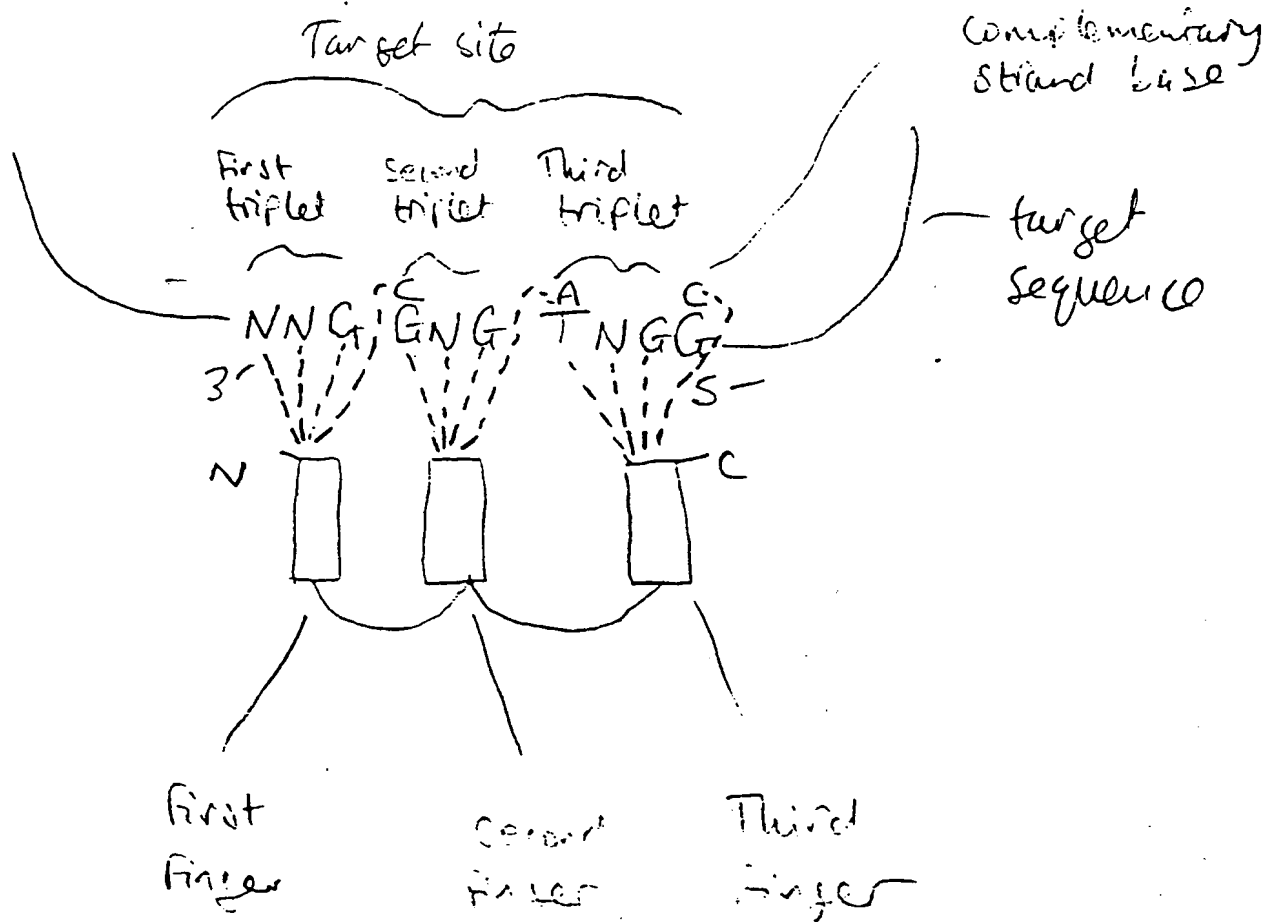 Target site
complementary
strand base
First
triplet
Second
triplet
Third
triplet
target
sequence
C
A
C
NNG
GNG
T
NGG
3'
5
N
C
First
Finger
Second
finger
Third
finger